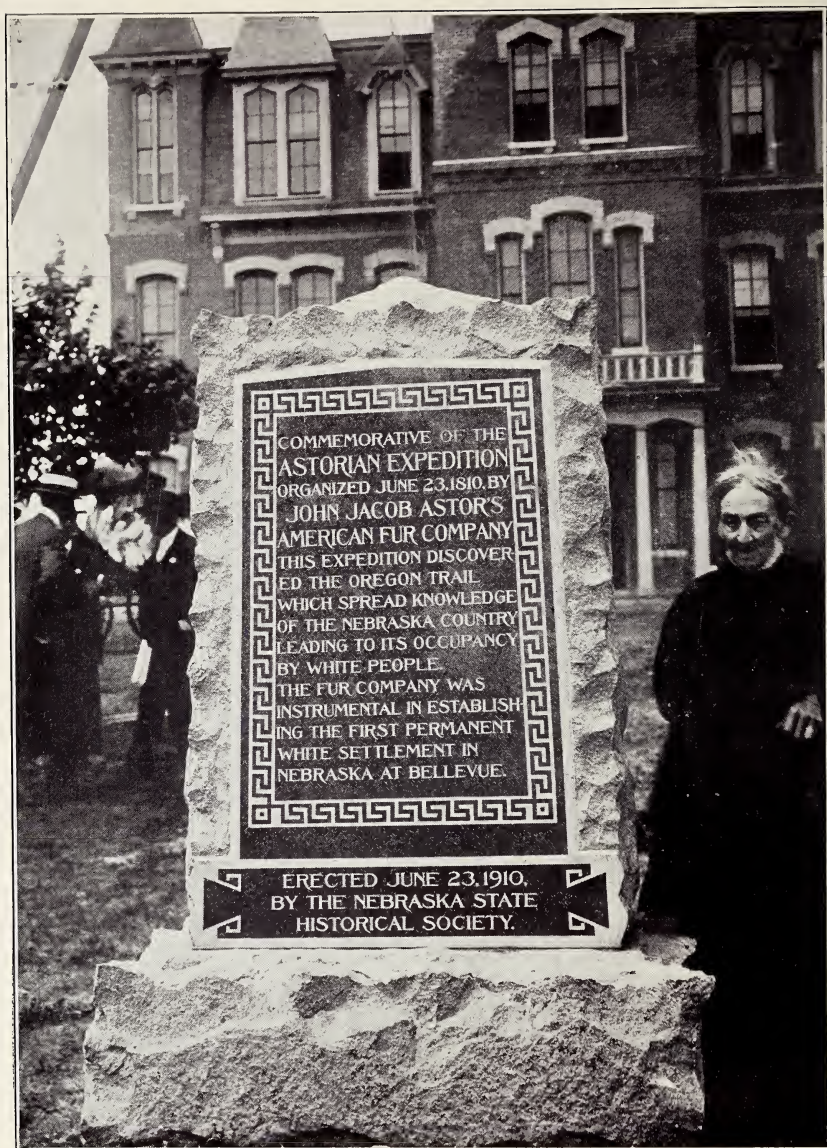 COMMEMORATIVE OF THE
ASTORIAN EXPEDITION
ORGANIZED JUNE 23,1810, BY
JOHN JACOB ASTOR'S
AMERICAN FUR COMPANY
THIS EXPEDITION DISCOVER-
ED THE OREGON TRAIL
WHICH SPREAD KNOWLEDGE
OF THE NEBRASKA COUNTRY
LEADING TO ITS OCCUPANCY
BY WHITE PEOPLE.
THE FUR COMPANY WAS
INSTRUMENTAL IN ESTABLISH-
ING THE FIRST PERMANENT
WHITE SETTLEMENT IN
NEBRASKA AT BELLEVUE.
ERECTED JUNE 23,1910,
BY THE NEBRASKA STATE
HISTORICAL SOCIETY.